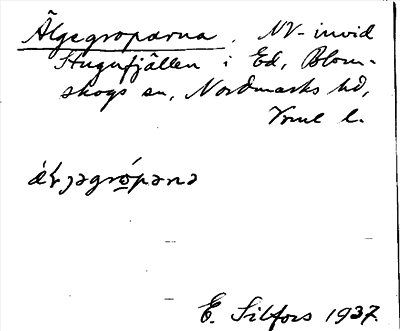 Älgegroparna, NV-invid
Stugufjällen i Ed, Blom-
skogs sn, Nordmarks hd,
Vrml l.
E. Silfors 1937.